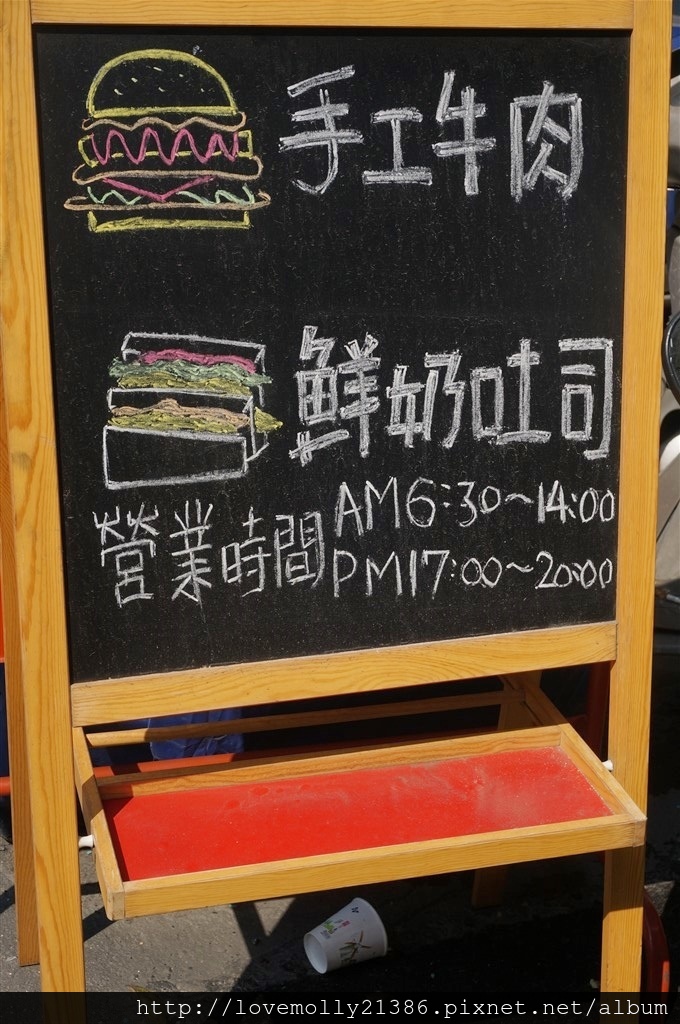 手工牛肉
鮮奶吐司
營業時間
AM6:30~14:00
PM17:00~20:00
http://lovemolly21386.pixnet.net/album